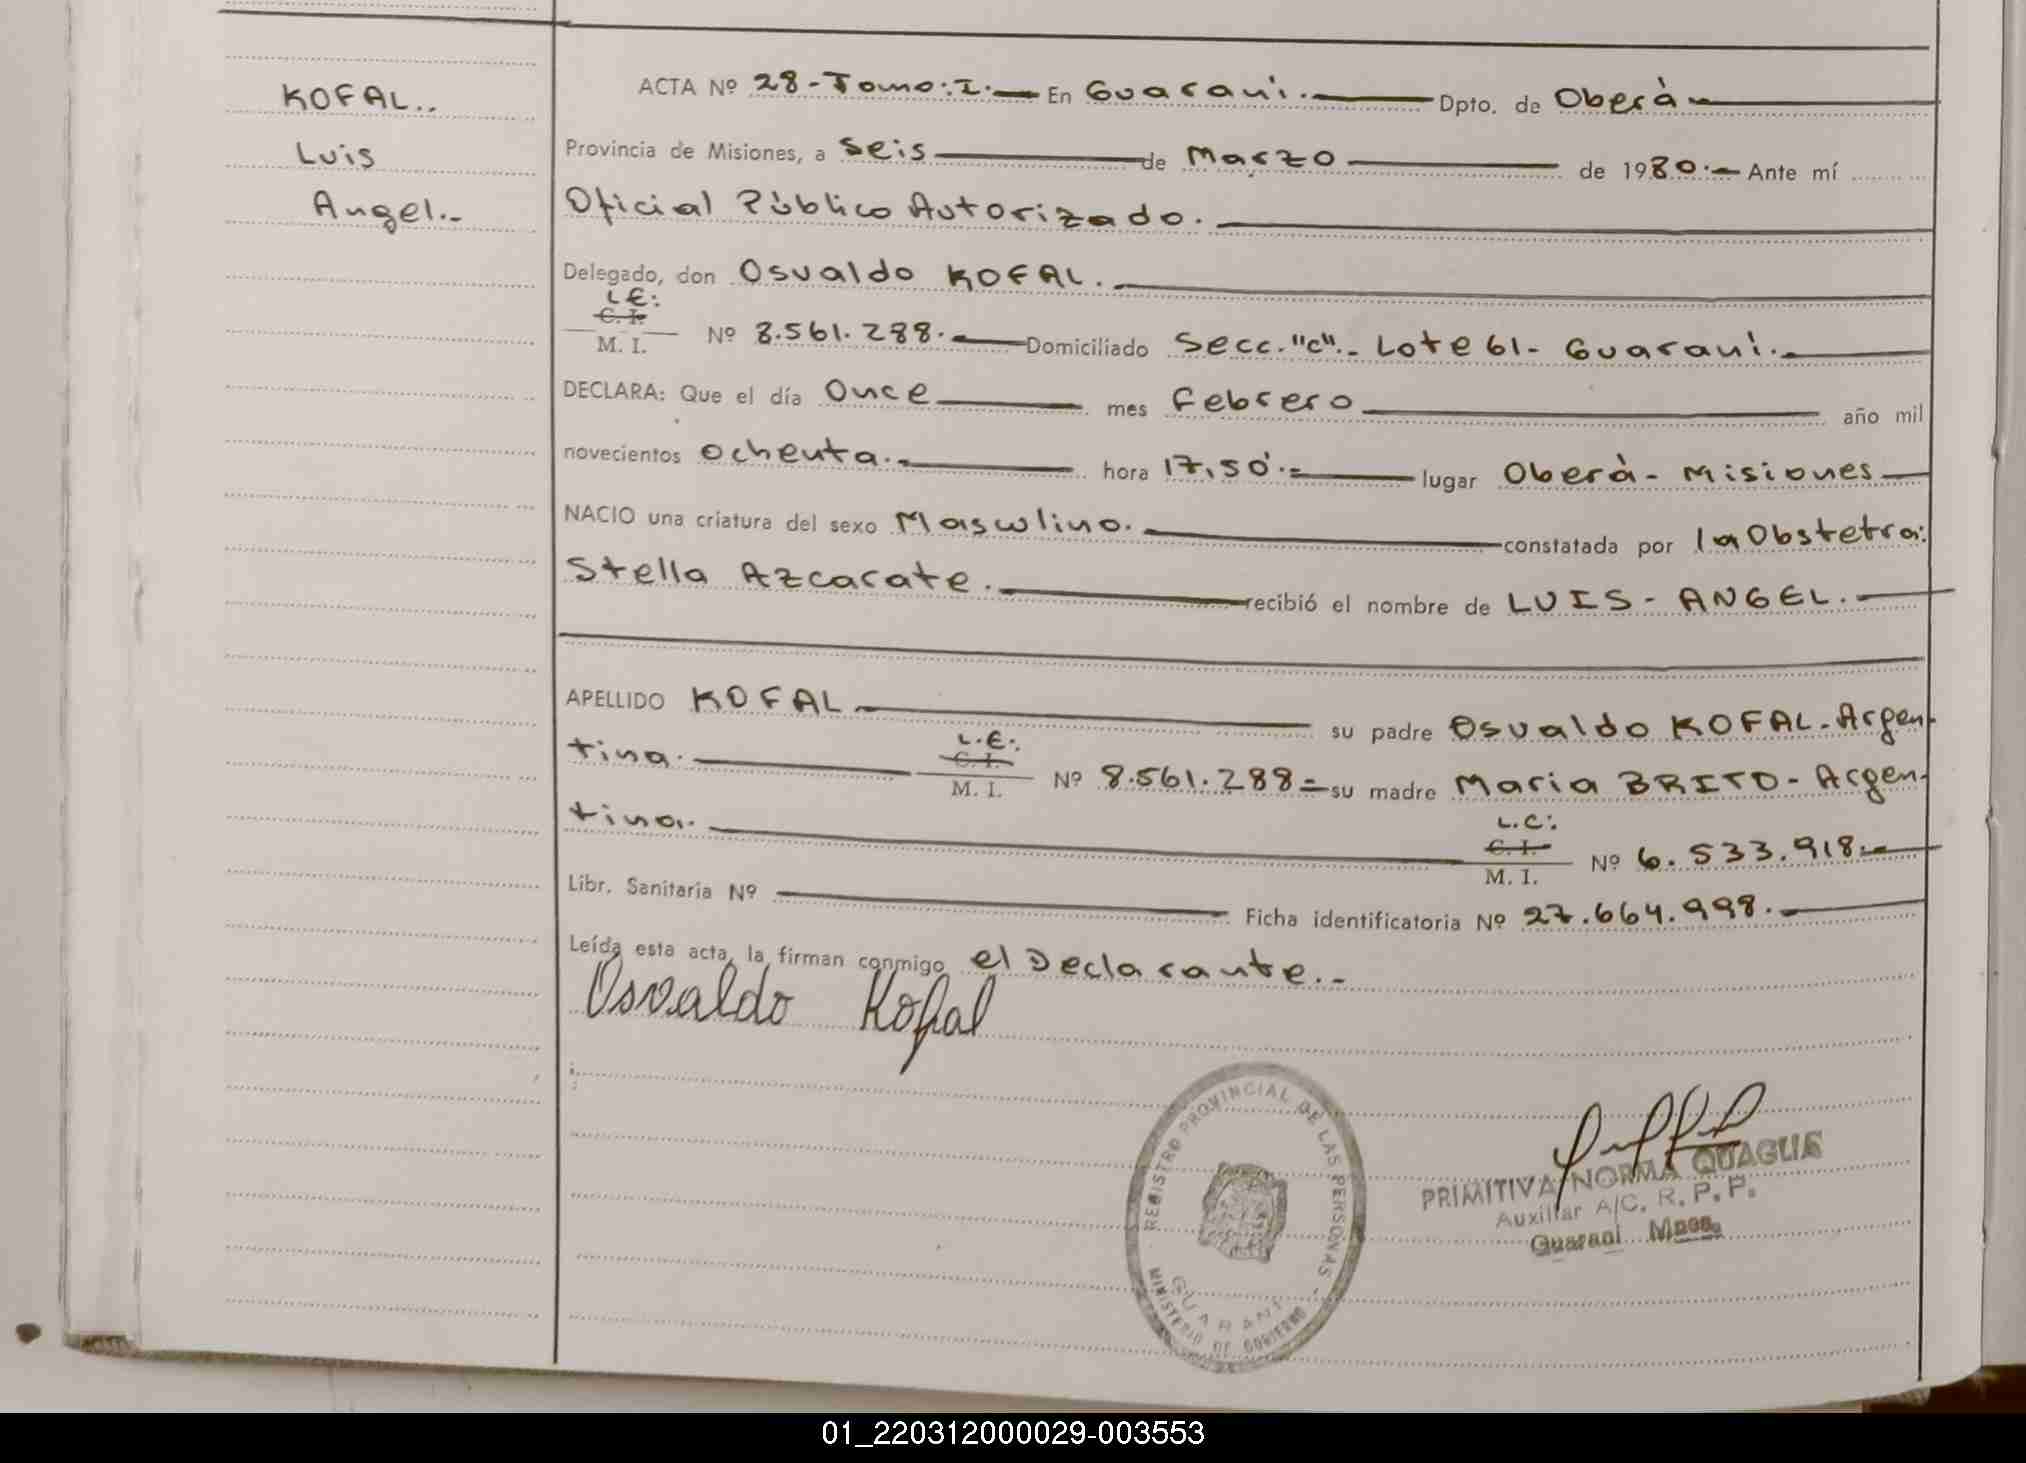 KOFAL..
Luis
Angel.-
ACTA Nº 28-Tomo:I.- En Guaraní.- Dpto. de Oberà-
Provincia de Misiones, a Seis de Marzo de 1980.- Ante mí
Oficial Público Autorizado.
Delegado, don Osvaldo KOFAL.
L.E:
C. I.
M. I. Nº 8.561.288.- Domiciliado Secc."C".- Lote 61- Guaraní.-
DECLARA: Que el día Once mes Febrero año mil
novecientos Ochenta.- hora 17,50.- lugar Oberà- Misiones
NACIO una criatura del sexo Masculino. constatada por la Obstetra:
Stella Azcarate. recibió el nombre de LUIS- ANGEL.-
APELLIDO KOFAL su padre Osvaldo KOFAL-Argen-
L.E:
C. I.
tina. M. I. Nº 8.561.288= su madre Maria BRITO- Argen-
L.C:
C. I.
tina. M. I. Nº 6.533.918.-
Libr. Sanitaria Nº Ficha identificatoria Nº 27.664.998.-
Leída esta acta, la firman conmigo el Declarante.-
Osvaldo Kofal
REGISTRO PROVINCIAL DE LAS PERSONAS
GUARANI
MINISTERIO DE GOBIERNO
PRIMITIVA NORMA QUAGLIA
Auxiliar A/C. R. P. P.
Guaraní Mnes.
01_220312000029-003553